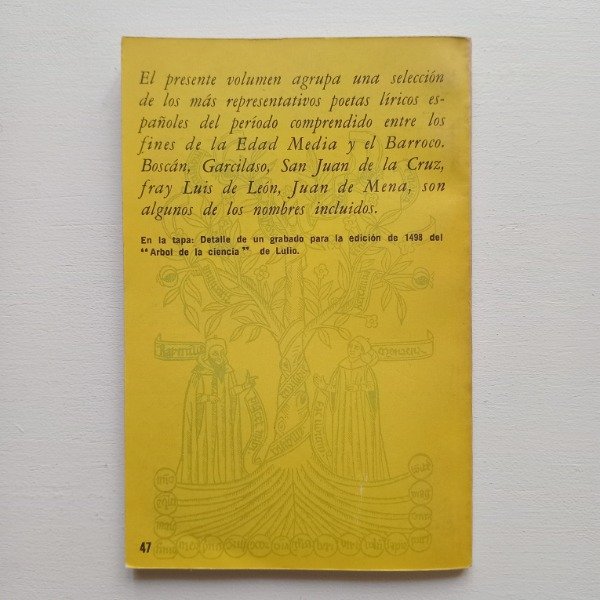 El presente volumen agrupa una selección
de los más representativos poetas líricos es-
pañoles del período comprendido entre los
fines de la Edad Media y el Barroco.
Boscán, Garcilaso, San Juan de la Cruz,
fray Luis de León, Juan de Mena, son
algunos de los nombres incluidos.
En la tapa: Detalle de un grabado para la edición de 1498 del
"Arbol de la ciencia" de Lulio.
47